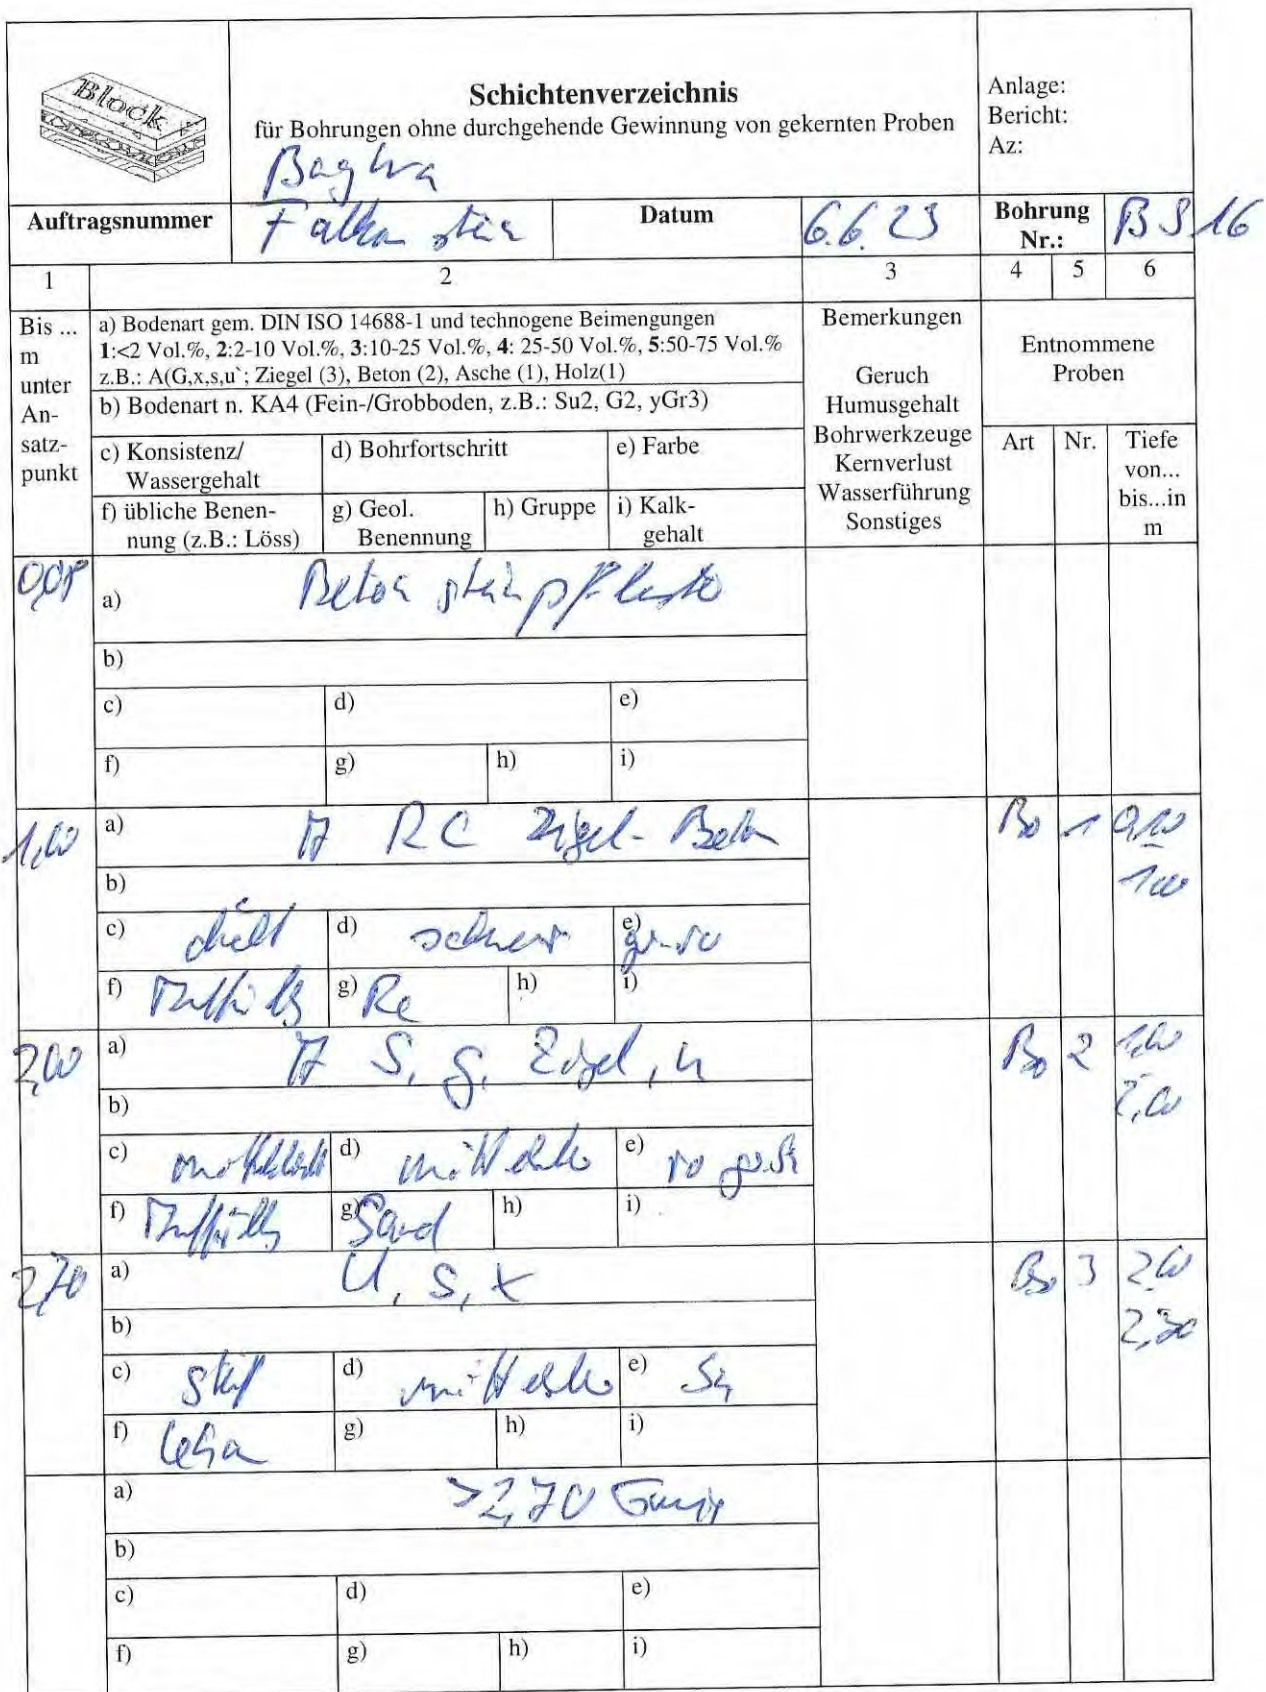 Block
Schichtenverzeichnis
für Bohrungen ohne durchgehende Gewinnung von gekernten Proben
Anlage:
Bericht:
Az:
Auftragsnummer
Datum
6.6.23
Bohrung
Nr.:
BS 16
1
2
3
4
5
6
Bis ...
m
unter
An-
satz-
punkt
a) Bodenart gem. DIN ISO 14688-1 und technogene Beimengungen
1:<2 Vol.%, 2:2-10 Vol.%, 3:10-25 Vol.%, 4: 25-50 Vol.%, 5:50-75 Vol.%
z.B.: A(G,x,s,u`; Ziegel (3), Beton (2), Asche (1), Holz(1)
b) Bodenart n. KA4 (Fein-/Grobboden, z.B.: Su2, G2, yGr3)
c) Konsistenz/
Wassergehalt
d) Bohrfortschritt
e) Farbe
f) übliche Benen-
nung (z.B.: Löss)
g) Geol.
Benennung
h) Gruppe
i) Kalk-
gehalt
Bemerkungen
Geruch
Humusgehalt
Bohrwerkzeuge
Kernverlust
Wasserführung
Sonstiges
Entnommene
Proben
Art
Nr.
Tiefe
von...
bis...in
m
0,08
a) Betonsteinpflaster
b)
c)
d)
e)
f)
g)
h)
i)
1,00
a) A RC Ziegel-Beton
Bo
1
0,10
1,00
b)
c) dicht
d) schwer
e) gr-ro
f) Auffüllg
g) Rc
h)
i)
2,00
a) A S, g, Ziegel, u
Bo
2
1,00
2,00
b)
c) mitteldicht
d) mittel
e)
f) Auffüllg
g) Sand
h)
i)
2,70
a) U, s, x
Bo
3
2,00
b)
c) steif
d) mittel
e)
f) Lehm
g)
h)
i)
a) >2,70
b)
c)
d)
e)
f)
g)
h)
i)